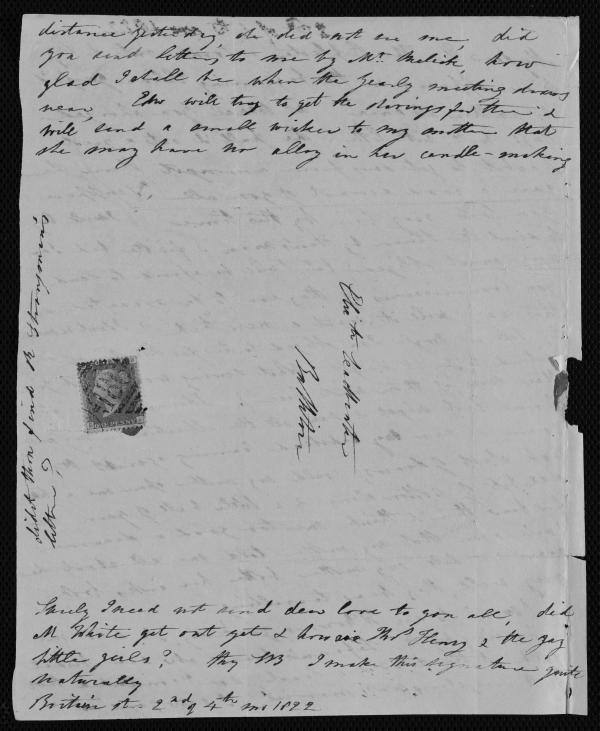 distance yesterday, she did not see me, did
you send letters to me by Mr. Melick, how
glad I shall be when the yearly meeting draws
near, Edw will try to get the shavings for thee &
will send a small wicker to my mother that
she may have no alloy in her candle-making
didst thou find R Strangman's
letter?
Leadbeater
Ballitore
ONE PENNY
Surely I need not send dear love to you all, did
M White get out yet & how is Thos. Henry & the
little girls? thy I make this signature quite
naturally
Britain st. 2nd of 4th mo 1822